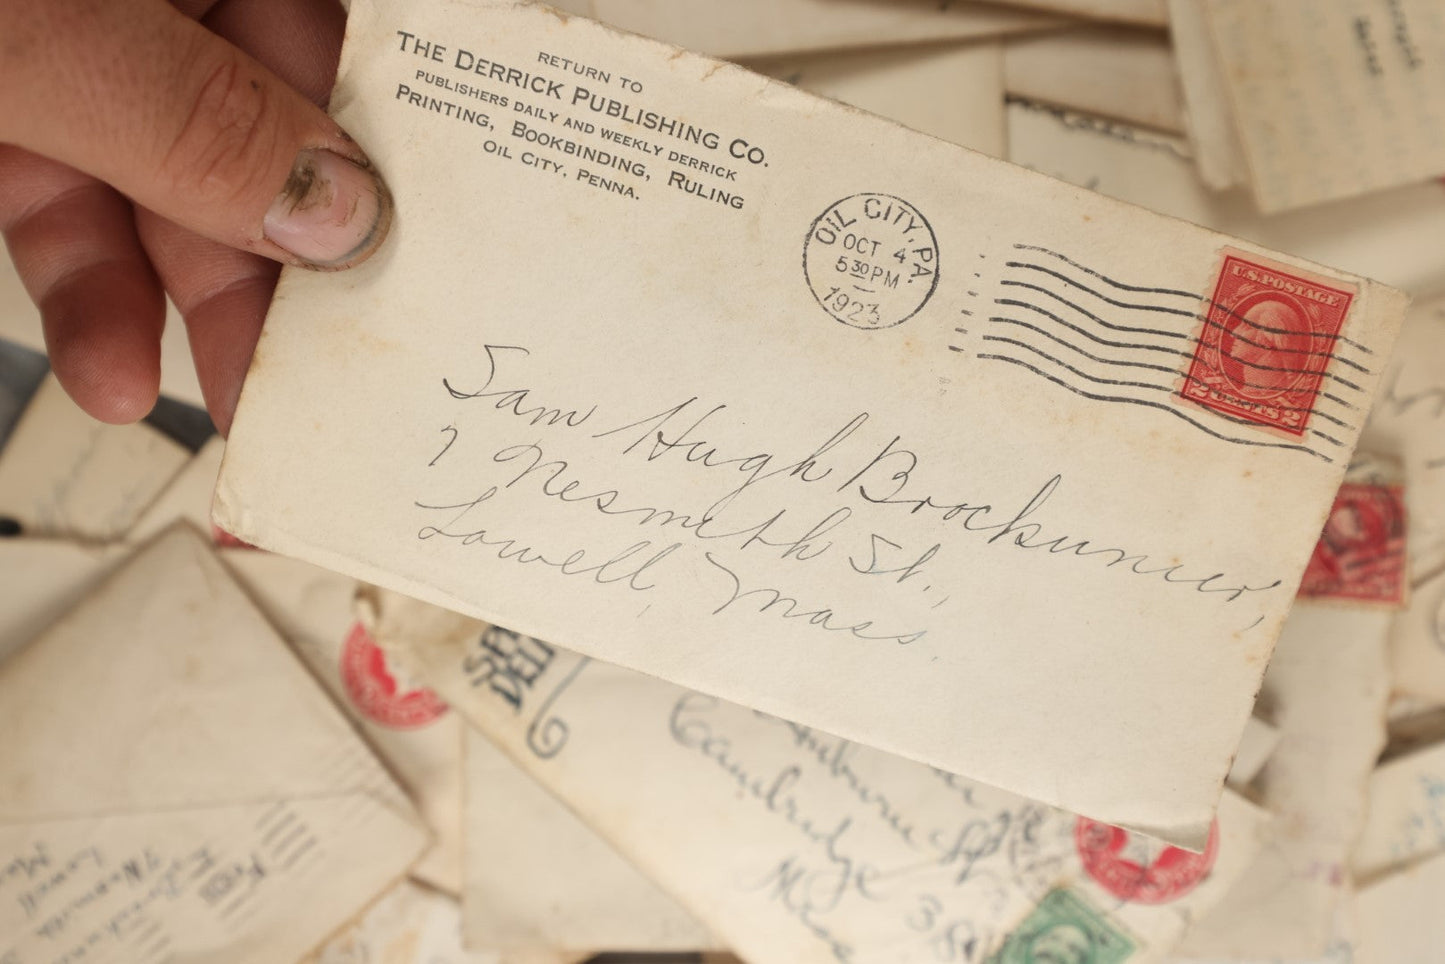 RETURN TO
THE DERRICK PUBLISHING CO.
PUBLISHERS DAILY AND WEEKLY DERRICK
PRINTING, BOOKBINDING, RULING
OIL CITY, PENNA.
OIL CITY, PA.
OCT 4
5 30 PM
1923
U.S. POSTAGE
2 CENTS 2
Sam Hugh Brockunier,
7 Nesmith St.,
Lowell, Mass.
Auburn
Cambridge
38
Lowell